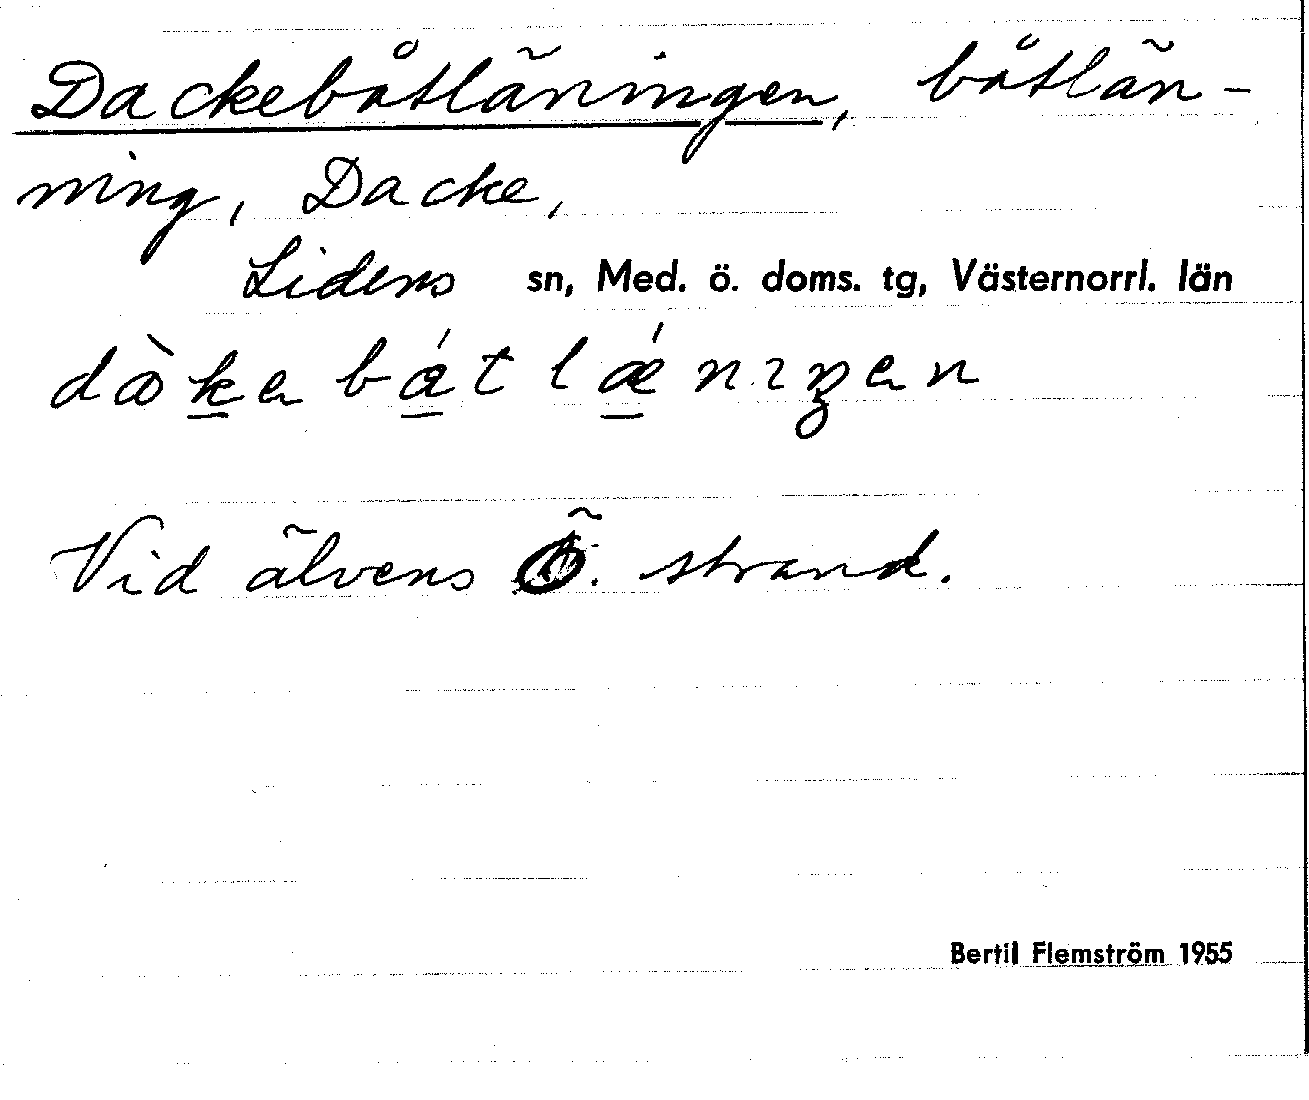 Dackebåtläningen, båtlän-
ning, Dacke,
Lidens sn, Med. ö. doms. tg, Västernorrl. län
Vid älvens Ö. strand.
Bertil Flemström 1955